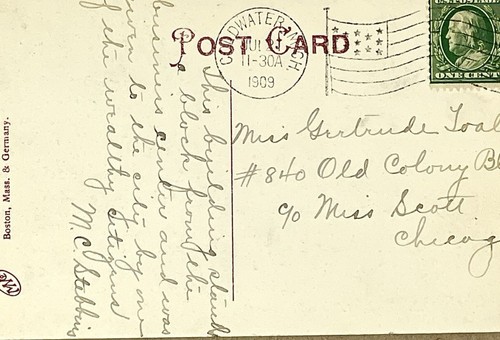 POST CARD
COLDWATER, MICH.
JUL
11-30A
1909
U.S. POSTAGE
ONE CENT
This building stands
a block from the
business center and was
given to the city by one
of the wealthy citizens
M. C. Stebbins
Miss Gertrude Toal
#840 Old Colony Bl
c/o Miss Scott
Chicag
Boston, Mass. & Germany.